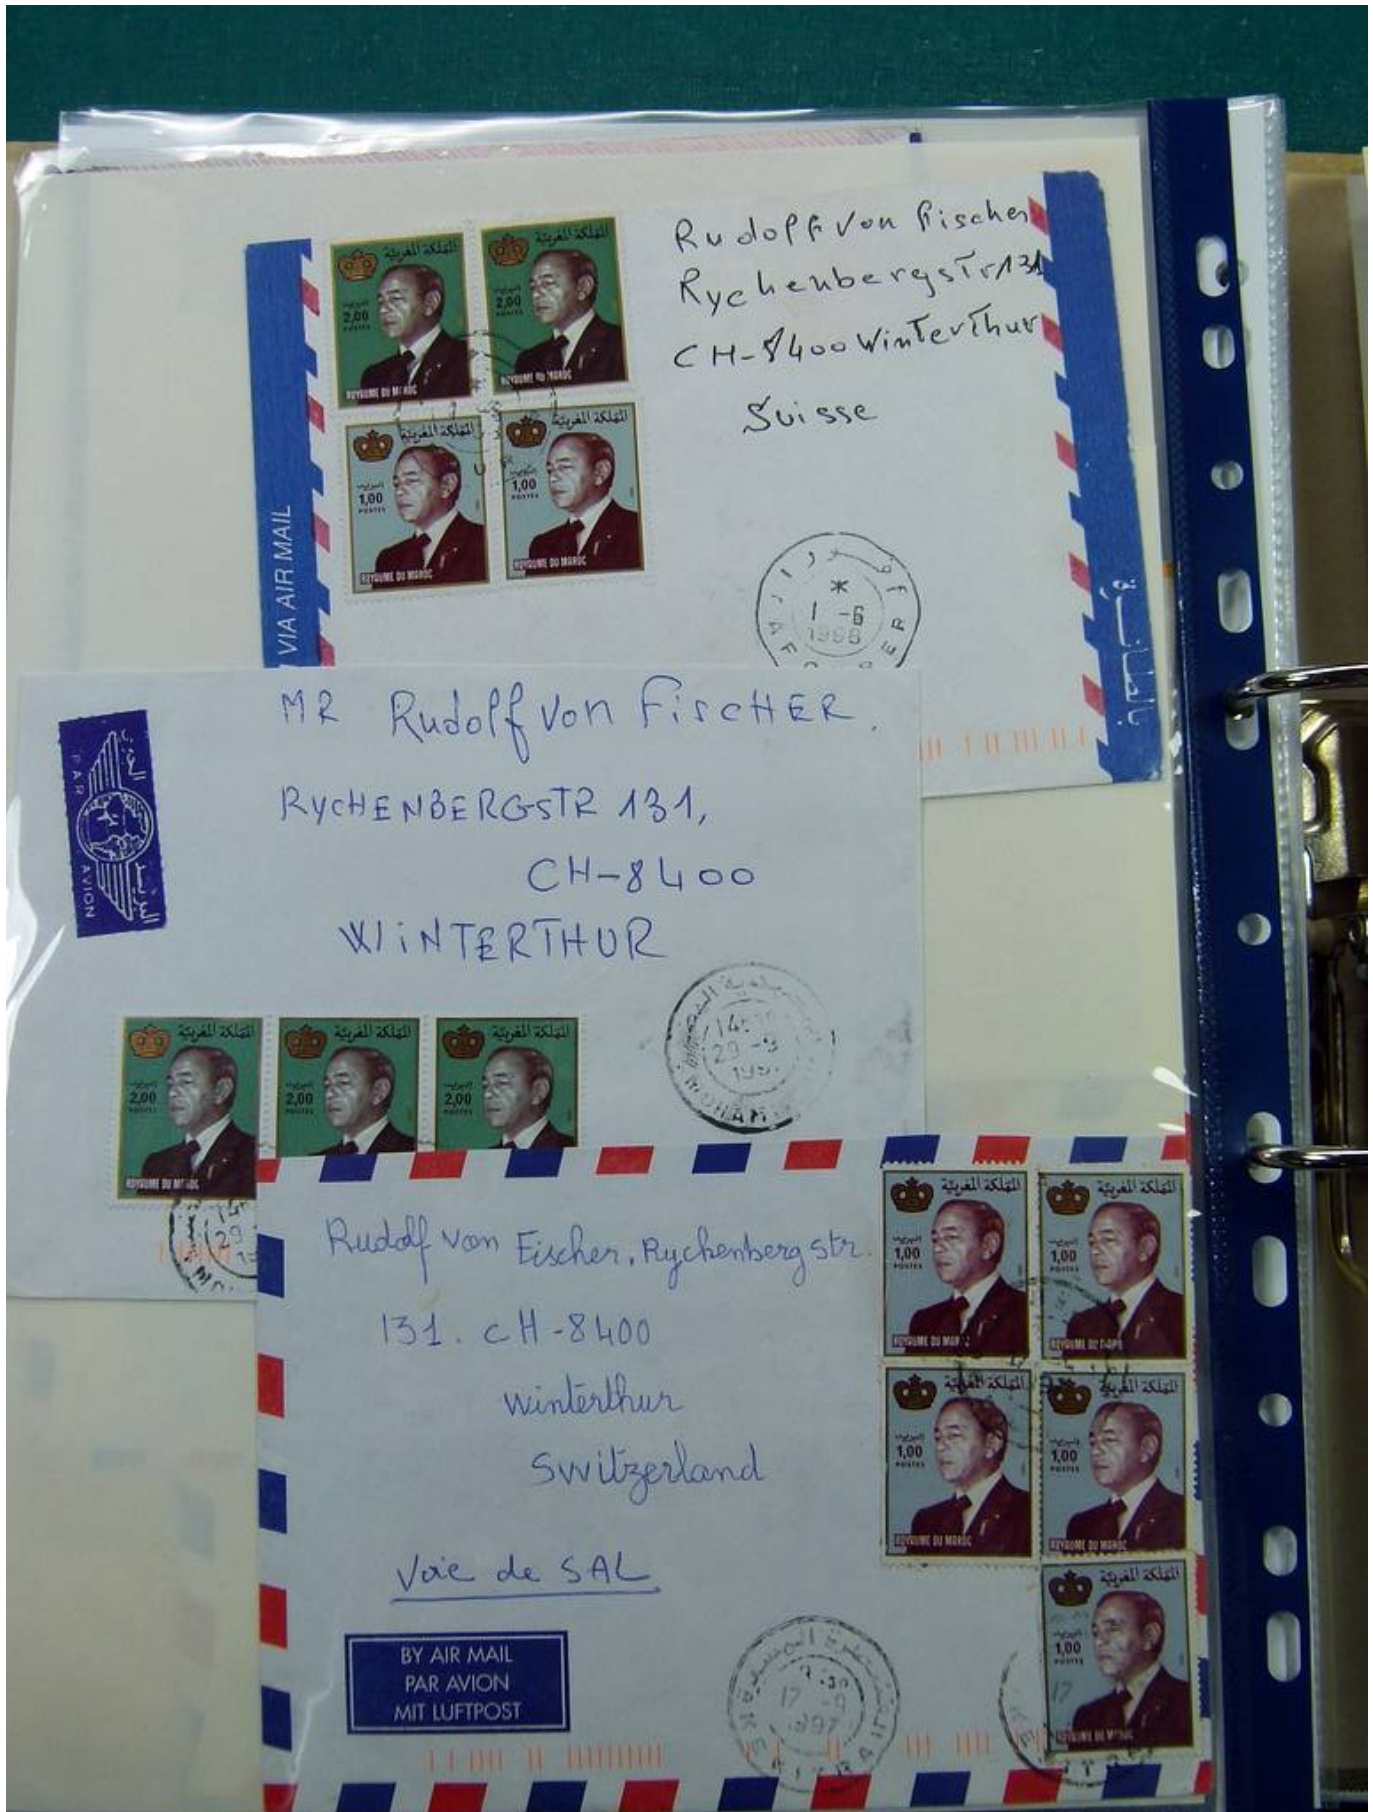 المملكة المغربية
2,00
POSTES
ROYAUME DU MAROC
المملكة المغربية
2,00
POSTES
ROYAUME DU MAROC
المملكة المغربية
1,00
POSTES
ROYAUME DU MAROC
المملكة المغربية
1,00
POSTES
ROYAUME DU MAROC
VIA AIR MAIL
Rudolff von Fischer
Rychenbergstr 131
CH-8400 Winterthur
Suisse
1 -6
MR Rudolff von FiscHER.
RYCHENBERGSTR 131,
CH-8400
WiNTERTHUR
PAR AVION
المملكة المغربية
2,00
POSTES
ROYAUME DU MAROC
المملكة المغربية
2,00
POSTES
المملكة المغربية
2,00
POSTES
Rudolf von Fischer, Rychenberg str.
131. CH-8400
Winterthur
Switzerland
Voie de SAL
BY AIR MAIL
PAR AVION
MIT LUFTPOST
المملكة المغربية
1,00
POSTES
ROYAUME DU MAROC
المملكة المغربية
1,00
POSTES
المملكة المغربية
1,00
POSTES
ROYAUME DU MAROC
المملكة المغربية
1,00
POSTES
ROYAUME DU MAROC
المملكة المغربية
1,00
POSTES
ROYAUME DU MAROC